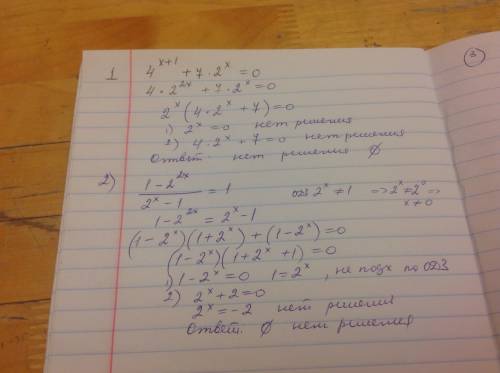 3
1 4^{x+1} + 7 · 2^x = 0
4 · 2^{2x} + 7 · 2^x = 0
2^x (4 · 2^x + 7) = 0
1) 2^x = 0 нет решения
2) 4 · 2^x + 7 = 0 нет решения
Ответ. нет решения ∅
2) \frac{1 - 2^{2x}}{2^x - 1} = 1 ОДЗ 2^x ≠ 1 => 2^x ≠ 2^0 =>
x ≠ 0
1 - 2^{2x} = 2^x - 1
(1 - 2^x)(1 + 2^x) + (1 - 2^x) = 0
(1 - 2^x)(1 + 2^x + 1) = 0
1) 1 - 2^x = 0 1 = 2^x, не подх по ОДЗ
2) 2^x + 2 = 0
2^x = -2 нет решения
Ответ. ∅ нет решения